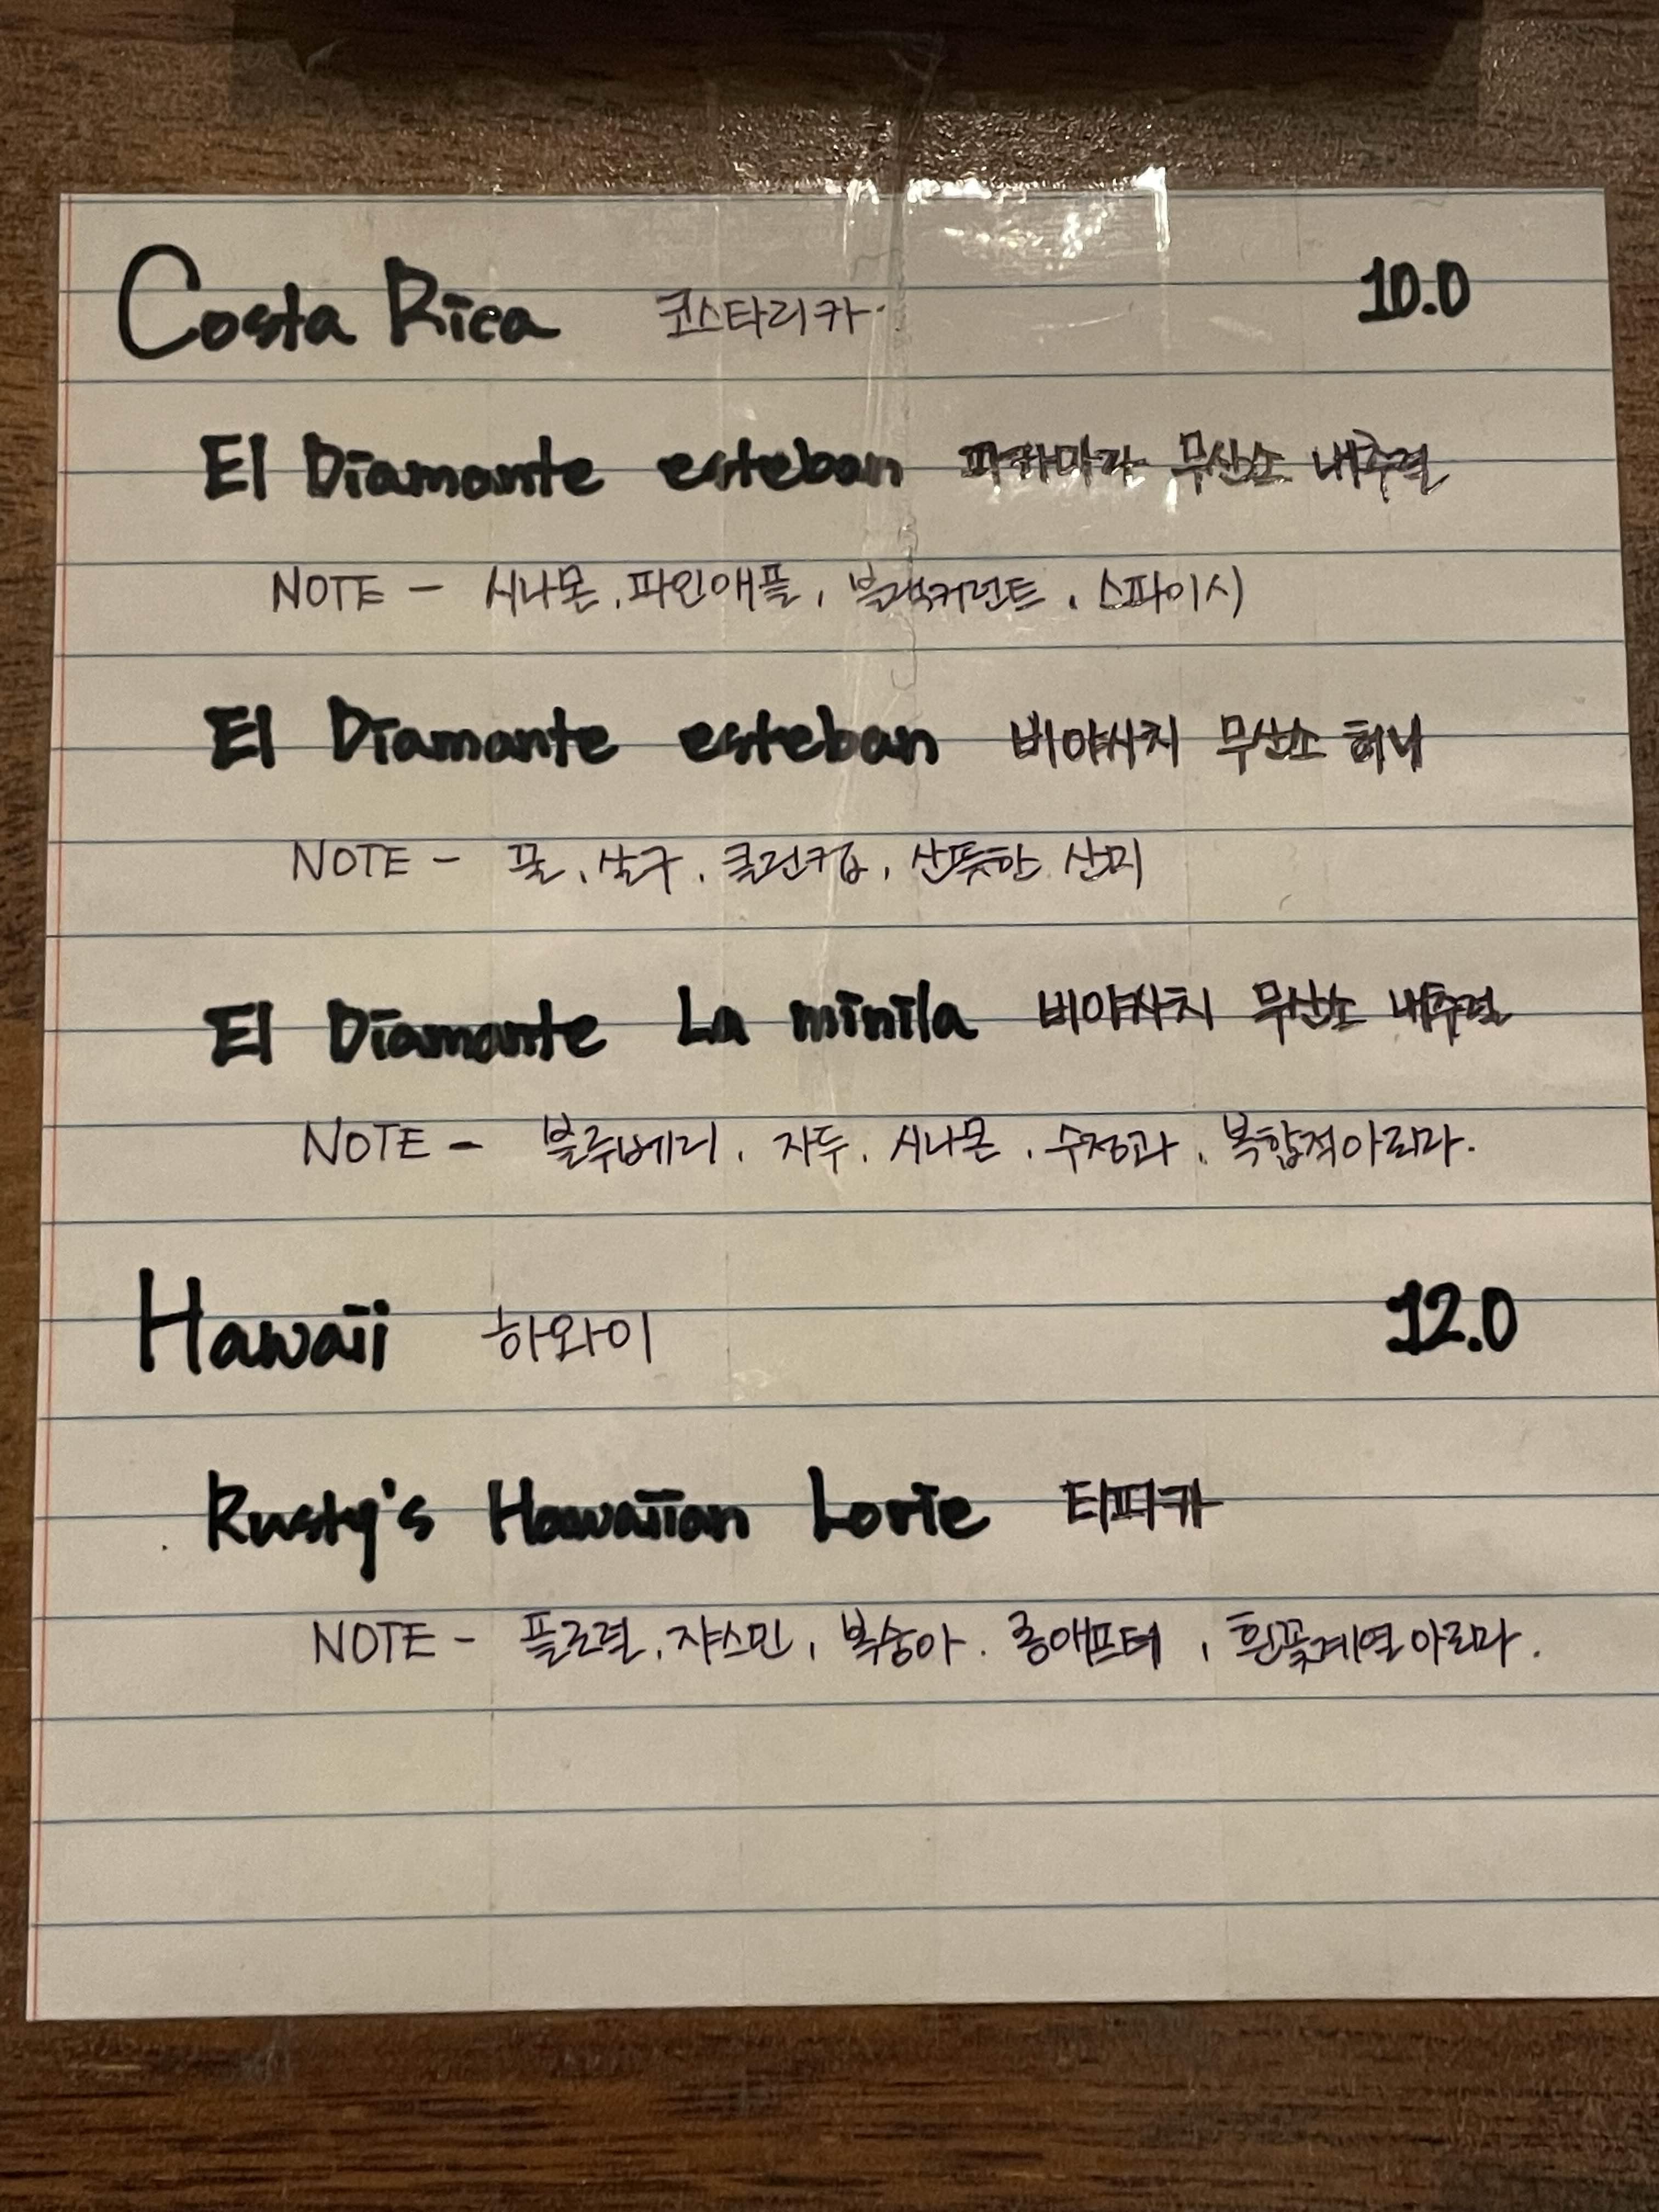 Costa Rica 코스타리카 10.0
El Diamante esteban 파카마라 무산소 내추럴
NOTE - 시나몬, 파인애플, 블랙커런트, 스파이시
El Diamante esteban 비야사치 무산소 허니
NOTE - 꿀, 살구, 클린컵, 산뜻한 산미
El Diamante La minila 비야사치 무산소 내추럴
NOTE - 블루베리, 자두, 시나몬, 수정과, 복합적아로마.
Hawaii 하와이 12.0
Rusty's Hawaiian Lorie 티피카
NOTE - 플로럴, 쟈스민, 복숭아. 롱애프터, 흰꽃계열아로마.